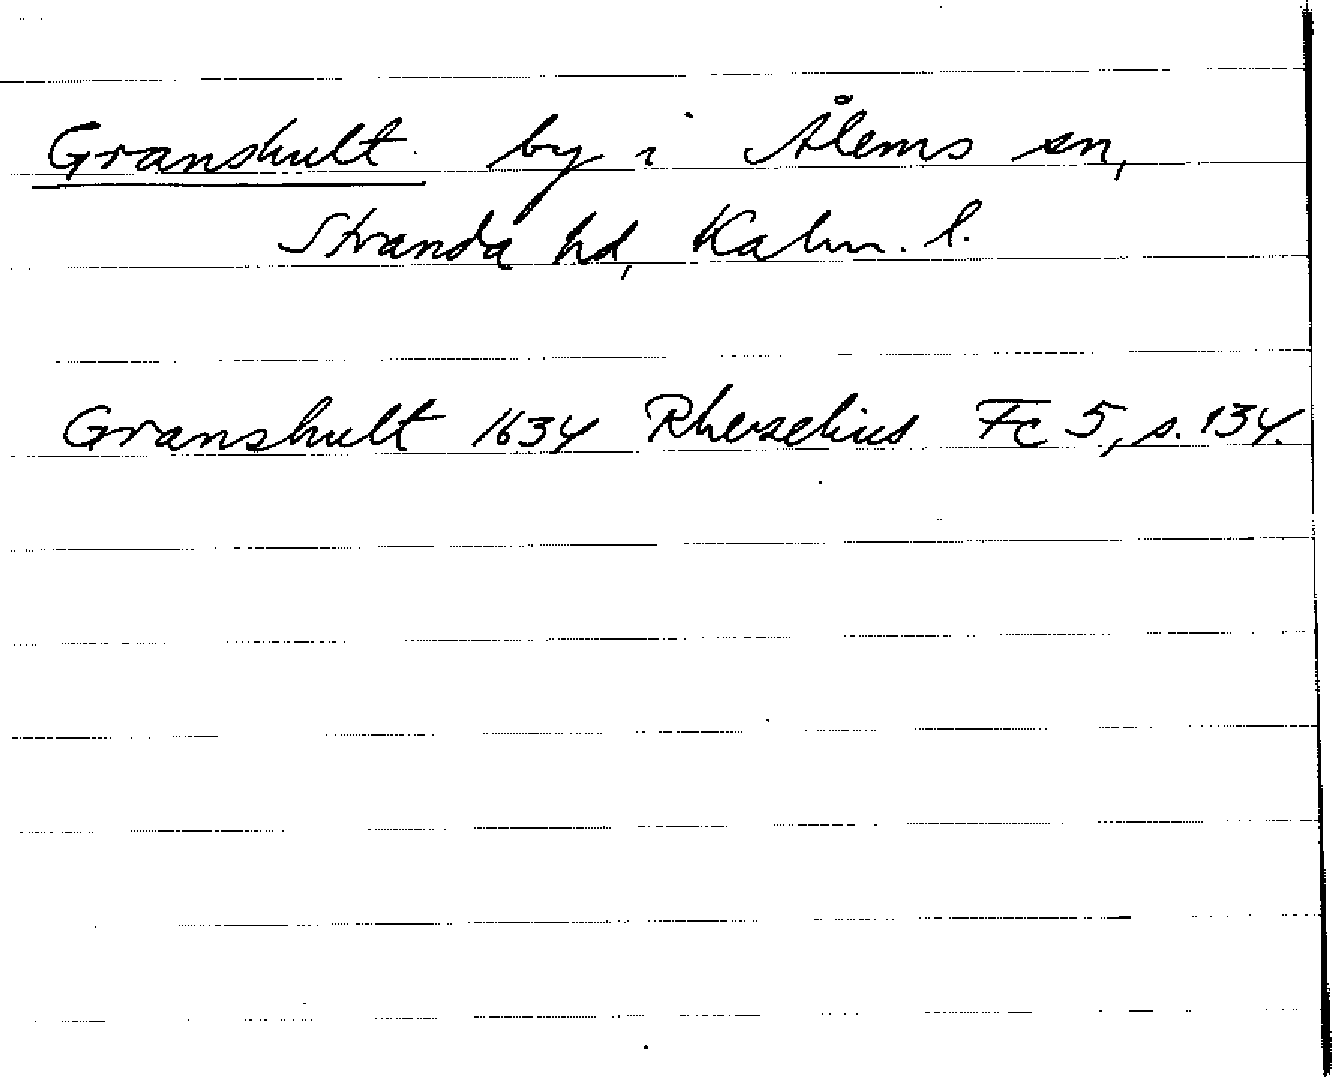 Granshult. by i Ålems sn,
Stranda hd, Kalm. l.
Granshult 1634 Rhezelius Fc 5, s. 134.